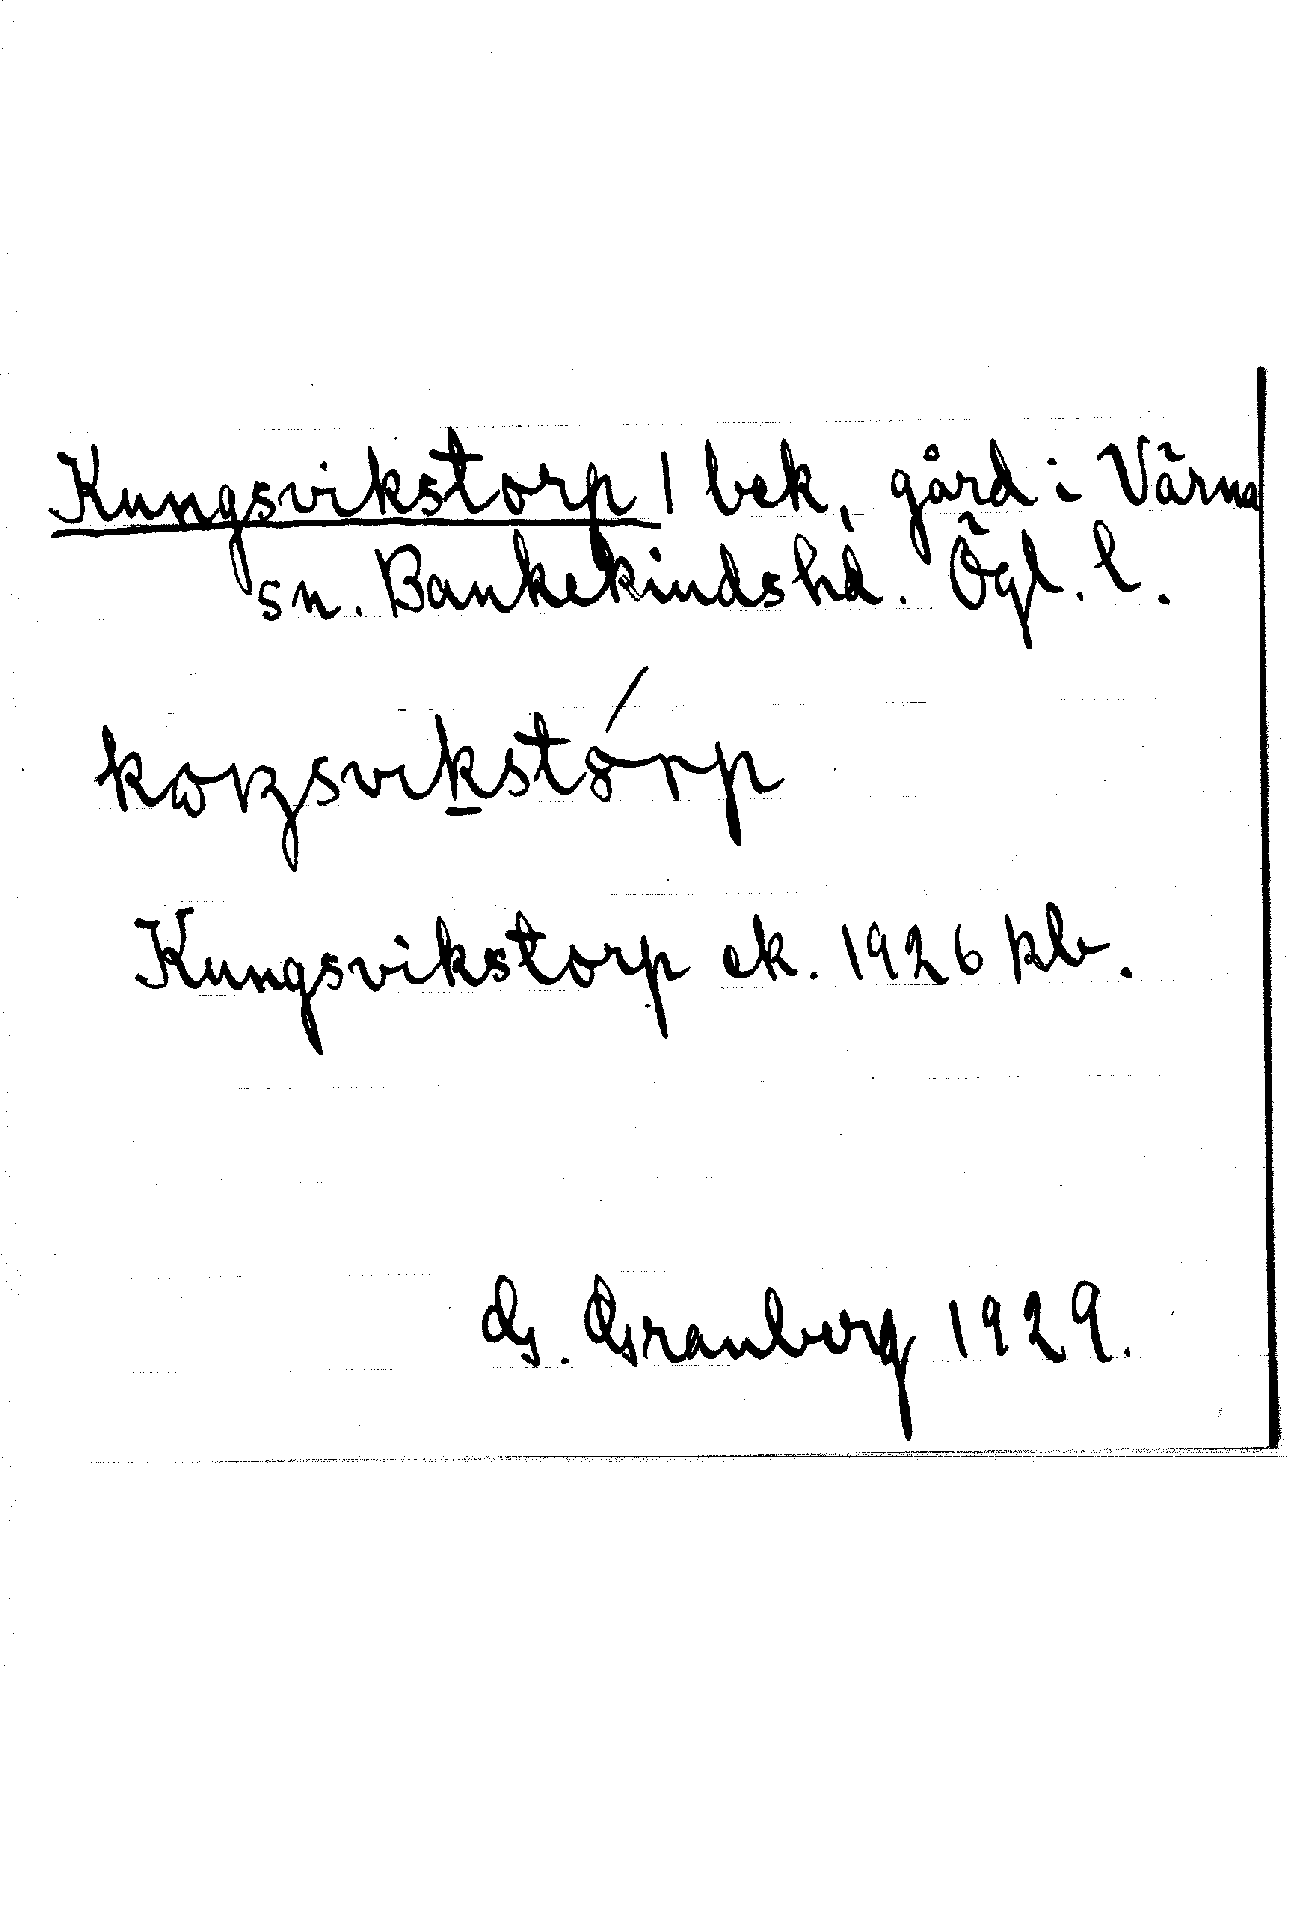 Kungsvikstorp / bek, gård i Värna
sn. Bankekinds hd. Ögl. l.
koŋsvikstórp
Kungsvikstorp ek. 1926 kb.
G. Granberg 1929.